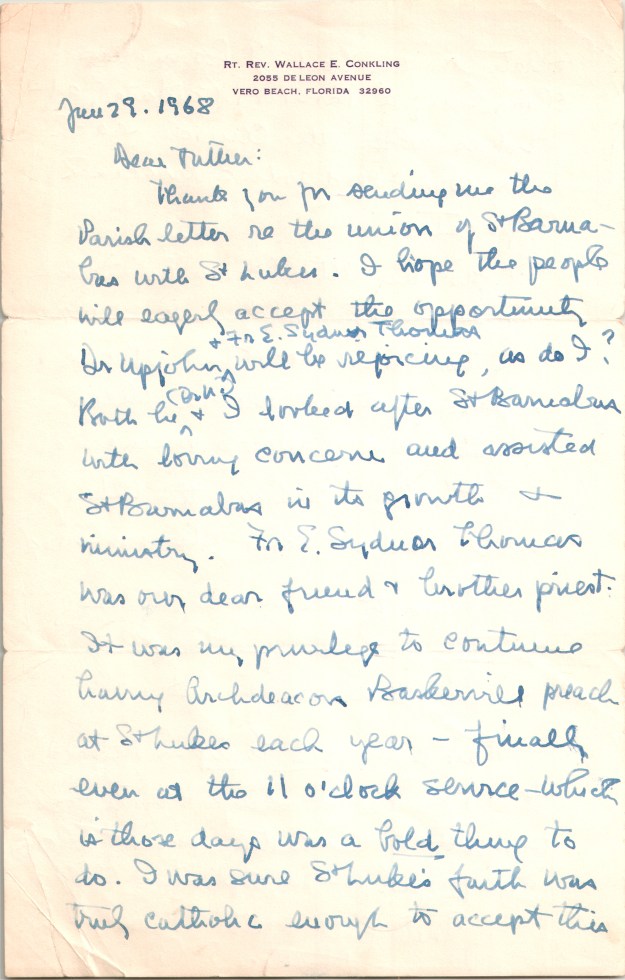 RT. REV. WALLACE E. CONKLING
2055 DE LEON AVENUE
VERO BEACH, FLORIDA 32960
29. 1968
Dear Father:
Thank you for sending me the
Parish letter re the union of St Barna-
bas with St Lukes. I hope the people
will eagerly accept the opportunity
+ Fr E. Sydnor Thomas
Dr Upjohn, will be rejoicing, as do I?
Both he + I looked after St Barnabas
with loving concern and assisted
St Barnabas in its growth +
ministry. Fr E. Sydnor Thomas
was our dear friend & brother priest.
It was my privilege to continue
having Archdeacon Baskervill preach
at St Lukes each year – finally
even at the 11 o'clock service – which
in those days was a bold thing to
do. I was sure St Luke's faith was
truly catholic enough to accept this